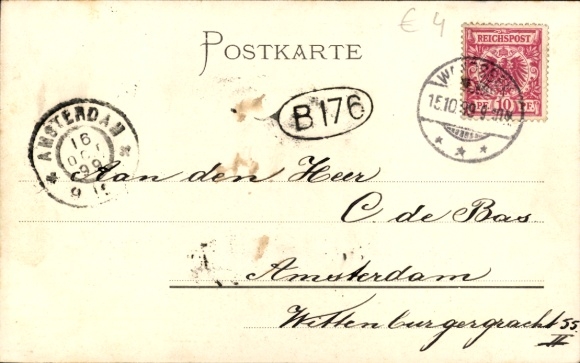 € 4
POSTKARTE
REICHSPOST
PF. 10 PF.
15.10.99
B176
AMSTERDAM
16
99
Aan den Heer
C. de Bas
Amsterdam
Wittenburgergracht 55
II